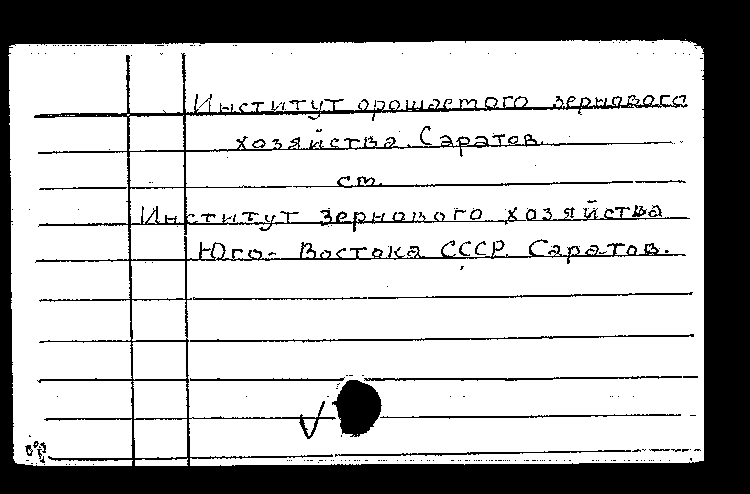 Институт орошаемого зернового
хозяйства. Саратов.
см.
Институт зернового хозяйства
Юго-Востока СССР. Саратов.